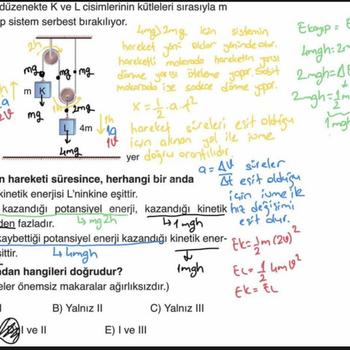 düzenekte K ve L cisimlerinin kütleleri sırasıyla m
p sistem serbest bırakılıyor.
2h
mg
mg
mg
m K
2mg
mg
L 4m
1h
4mg
yer
4mg > 2mg için sistemin
hareket yönü oklar yönündedir.
hareketli makarada hareketin yarısı
dönme yarısı öteleme yapar. Sabit
makarada ise sadece dönme yapar.
x = 1/2 . a . t²
hareket süreleri eşit olduğu
için alınan yol ile ivme
doğru orantılıdır.
a = ΔV/Δt süreler
eşit olduğu
için ivme ile
hız değişimi
eşit olur.
Ekayıp = E
4mgh = 2m
2mgh = ΔE
2mgh = 1/2 m
n hareketi süresince, herhangi bir anda
kinetik enerjisi L'ninkine eşittir.
kazandığı potansiyel enerji, kazandığı kinetik
den fazladır.
mg2h
1mgh
kaybettiği potansiyel enerji kazandığı kinetik ener-
şittir.
4mgh
1mgh
Ek = 1/2 m (2v)²
EL = 1/2 4m v²
EK = EL
dan hangileri doğrudur?
eler önemsiz makaralar ağırlıksızdır.)
I B) Yalnız II C) Yalnız III
I ve II E) I ve III